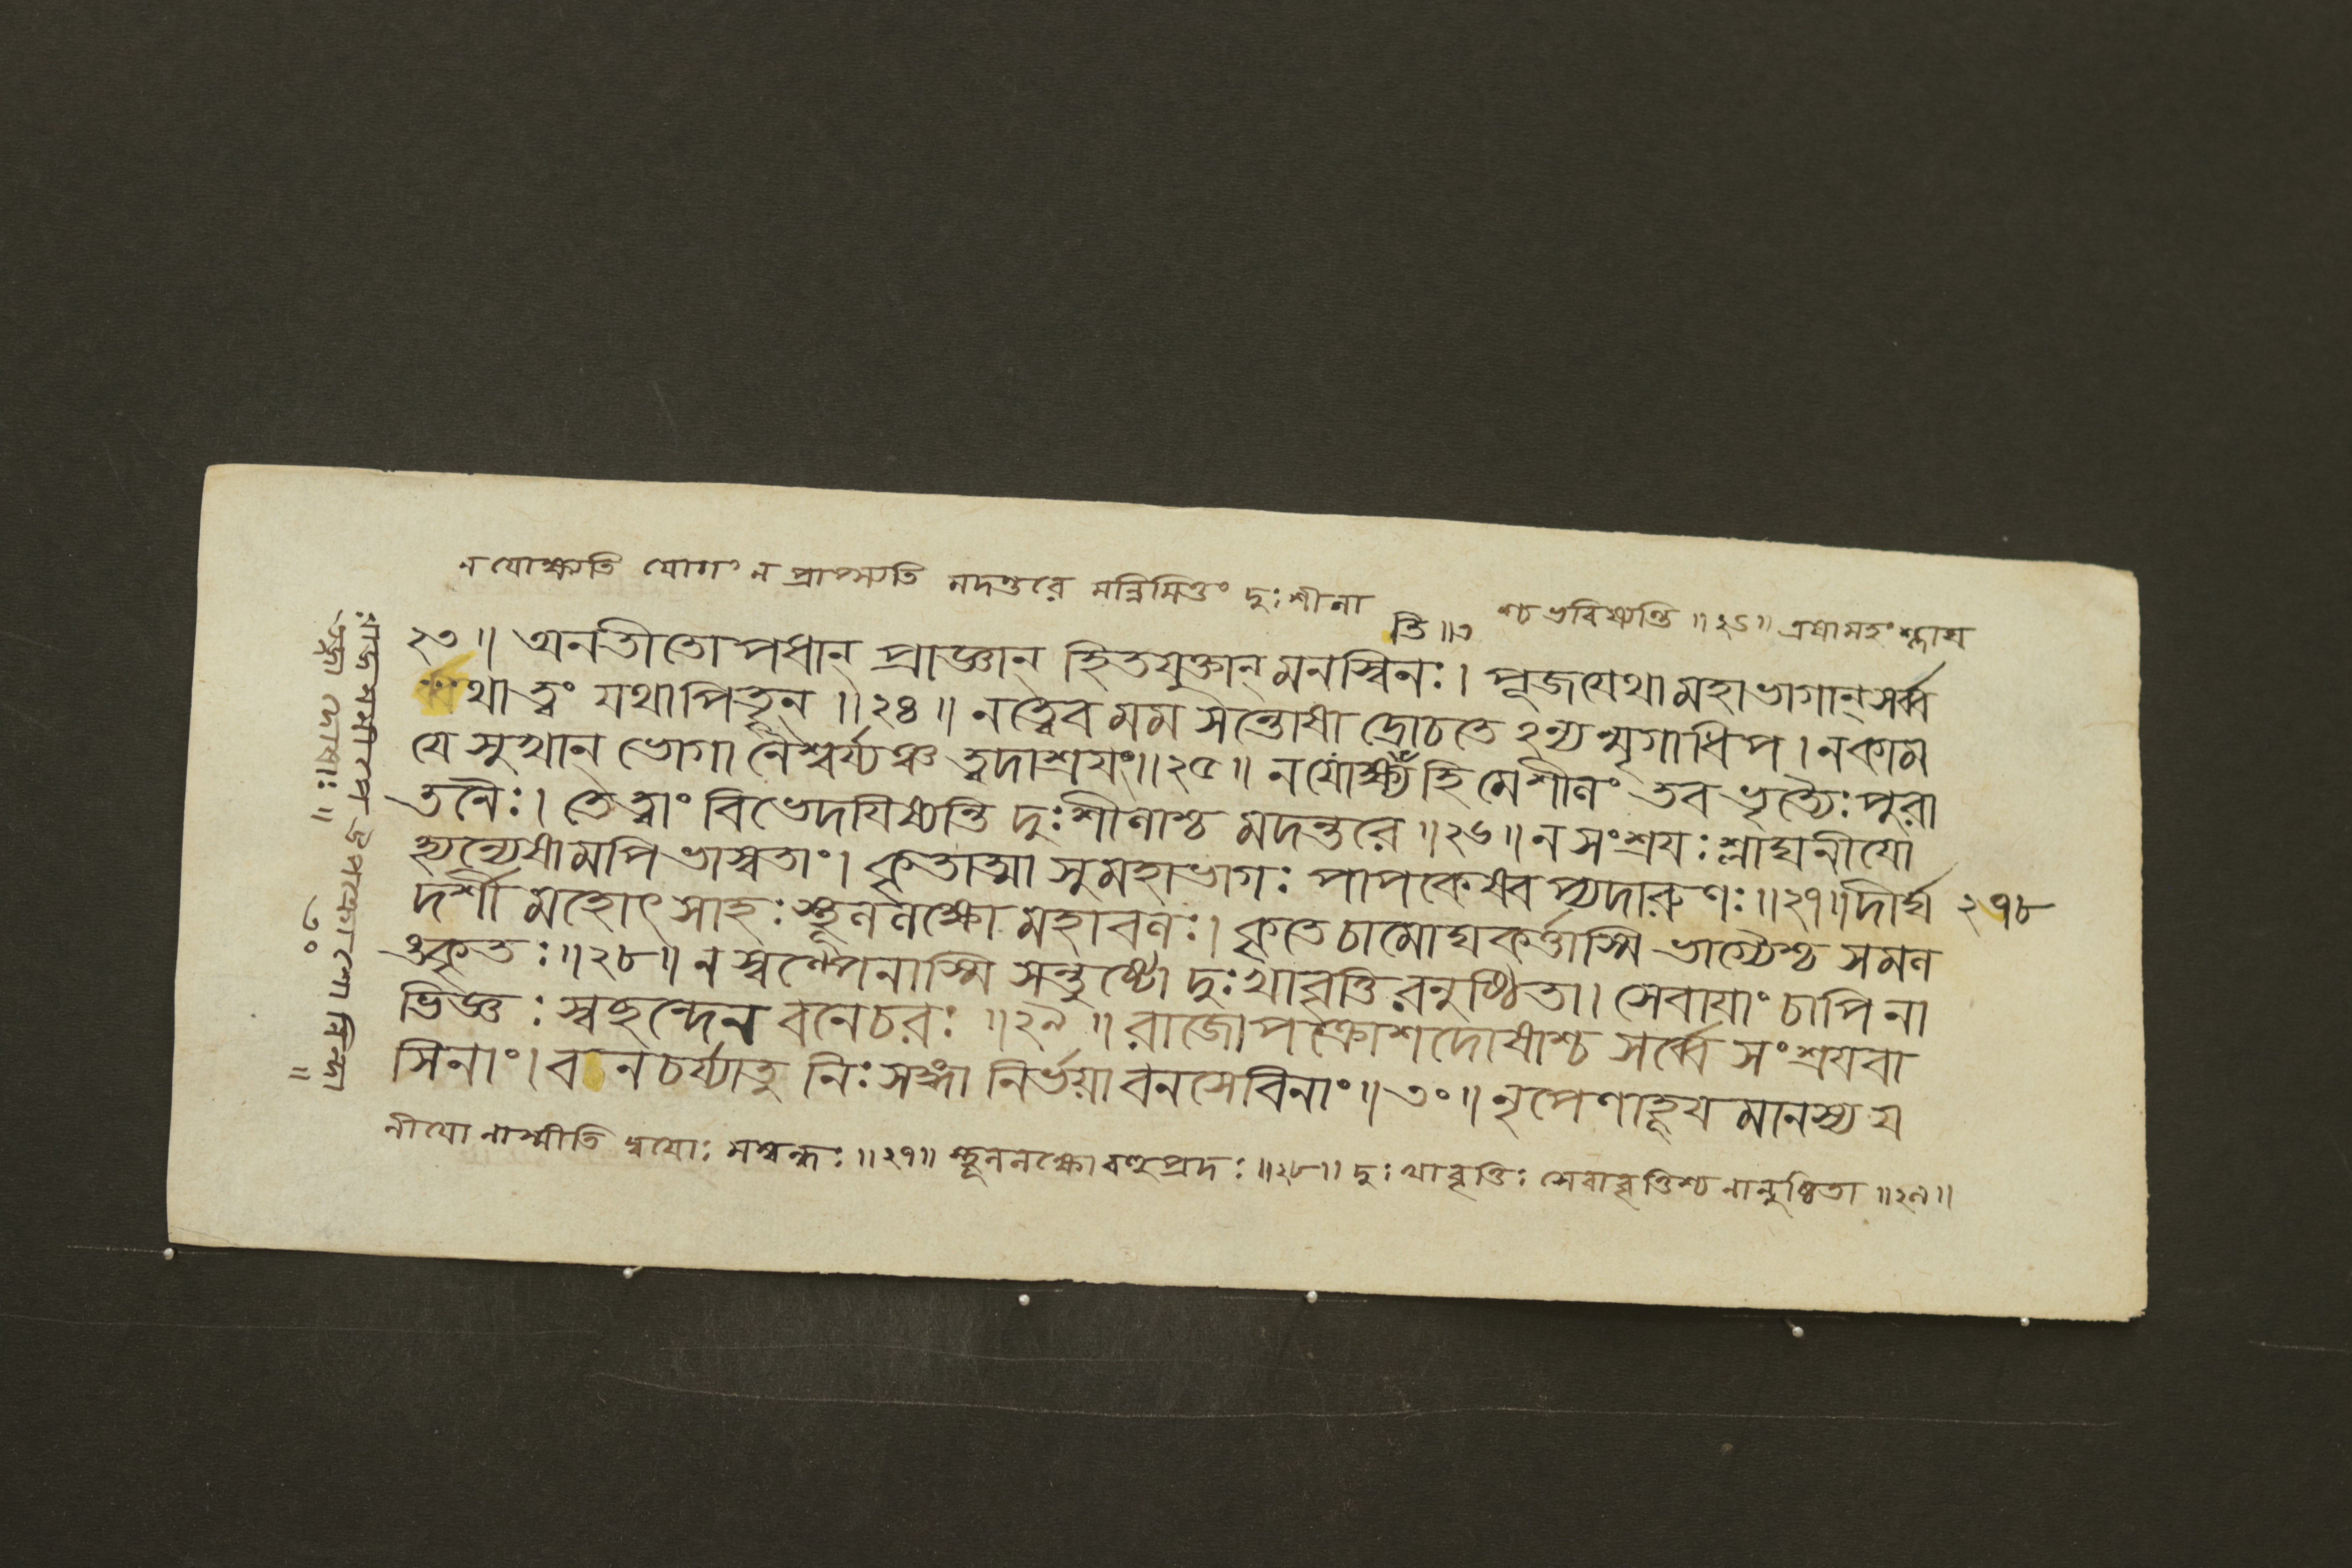 ন যোক্ষ্যতি যোগং ন প্রাপ্স্যতি মদন্তরে মন্নিমিত্তং দুঃশীলা
শ্চ ভবিষ্যন্তি ॥২৬॥ এষামহং শ্লাঘ
ন্তি॥এ
২৩॥ অনতীতোপধান্ প্রাজ্ঞান্ হিতযুক্তান্ মনস্বিনঃ। পূজযেথা মহাভাগান্ সর্ব্ব
থা ত্বং যথা পিতৄন্ ॥২৪॥ নত্বেব মম সন্তোষাদ্রোচতে ঽন্যন্মৃগাধিপ। ন কাম
যে সুখান্ ভোগানৈশ্বর্য্যঞ্চ ত্বদাশ্রযং॥২৫॥ ন যোক্ষ্যতি হি মে শীলং তব ভৃত্যৈঃ পুরা
তনৈঃ। তে ত্বাং বিভেদযিষ্যন্তি দুঃশীলাশ্চ মদন্তরে ॥২৬॥ ন সংশ্রযঃ শ্লাঘ্যনীযো
হ্যন্যেষামপি ভাস্বতাং। কৃতাত্মা সুমহাভাগঃ পাপকেষ্বপ্যদারুণঃ॥২৭॥ দীর্ঘ
২৭৮
দর্শী মহোৎসাহঃ স্থূললক্ষো মহাবলঃ। কৃতে চামোঘকর্ত্তাস্মি ভাগ্যৈশ্চ সমল
ঙ্কৃতঃ॥২৮॥ ন স্বল্পেনাস্মি সন্তুষ্টো দুঃখাবৃত্তিরনুষ্ঠিতা। সেবাযাং চাপি না
ভিজ্ঞঃ স্বছন্দেন বনেচরঃ ॥২৯॥ রাজোপক্রোশদোষাশ্চ সর্ব্বে সংশ্রযবা
সিনাং। বনচর্য্যাতু নিঃসঙ্গা নির্ভয়া বনসেবিনাং॥৩০॥ নৃপেণাহূযমানস্য য
নীযো নাস্মীতি দ্বযোঃ সম্বন্ধঃ ॥২৭॥ স্থূললক্ষো বহুপ্রদঃ ॥২৮॥ দুঃখাবৃত্তিঃ সেবাবৃত্তিশ্চ নানুষ্ঠিতা ॥২৯॥
রাজসমীপে উপক্রোশো নিন্দা
দোষাঃ ॥
৩০
॥